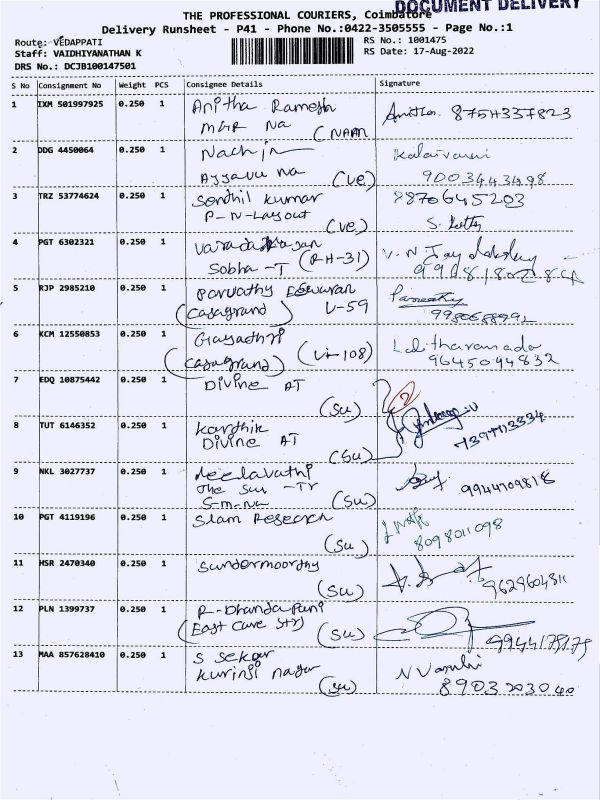 DOCUMENT DELIVERY
THE PROFESSIONAL COURIERS, Coimbatore
Delivery Runsheet - P41 - Phone No.:0422-3505555 - Page No.:1
Route: VEDAPPATI
RS No.: 1001475
Staff: VAIDHIYANATHAN K
RS Date: 17-Aug-2022
DRS No.: DCJB100147501
S No Consignment No Weight PCS Consignee Details Signature
1 IXM 501997925 0.250 1 Anitha Ramesh
MGR Na
2 DDG 4450064 0.250 1 Nachin Kalaivani
Ayyavu Na (ve) 9003443498
3 TRZ 53774624 0.250 1 Senthil Kumar 8870645203
P-N-Layout (ve)
4 PGT 6302321 0.250 1 (RH-31)
Sobha -T
5 RJP 2985210 0.250 1 Parvathy Eswaran
(Casagrand) V-59
6 KCM 12550853 0.250 1 Gayathri Lalitha
(Casagrand) 9645094832
7 EDQ 10875442 0.250 1 Divine AT
(Su) 2
8 TUT 6146352 0.250 1 Karthik
Divine AT (Su)
9 NKL 3027737 0.250 1 Leelavathi
The Sun -Tr 9944709818
S-m-Na (Su)
10 PGT 4119196 0.250 1 Slam Research
(Su) 8098011098
11 HSR 2470340 0.250 1 Sundermoorthy
(Su) 9629604311
12 PLN 1399737 0.250 1 R-Dhandapani
(Su)
13 MAA 857628410 0.250 1 S Sekar
Kurinji nagar (Su) 8903203040